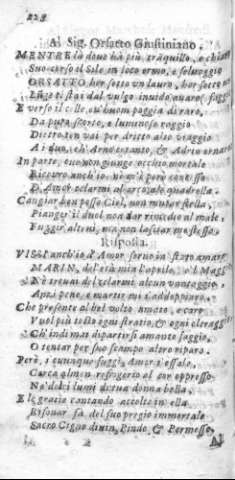 228
Al Sig. Orsatto Giustiniano.
MENTRE là dove hà più tràquillo, e chiaro
Suo corso il Sole in loco ermo, e selvaggio
ORSATTO hor sotto un lauro, hor sotto un
Lūge ti stai dal vulgo invido avaro; saggio
E verso il colle, ou'huom poggia di raro,
Da pura scorto, e luminoso raggio
Dietro ten vai per dritto also viaggio
A i duo, ch'Arno
In parte, ove non giunge occhio mortale
Ricovro anch'io. nè m'è però concesso
D'Amor celarmi al arco, à le quadrella.
Cangiar ben posso Ciel, non mutar stella,
Pianger il duol non dar rimedio al male,
Fuggir altrui, ma non lasciar me stesso.
Risposta.
VISSI anch'io d'Amor servo in stato amaro
MARIN, de l'età mia l'aprile, e'l Maggio
Nè trovai del celarmi alcun vantaggio,
Anzi pene, e martir mi raddoppiaro.
Che presente al bel volto amato, e caro
Vuol più tosto ogni stratio, & ogni oltraggio
Ch'indi mai dipartirsi amante saggio,
O tentar per suo scampo altro riparo.
Però, s'ovunque fuggi, Amor t'assale,
Cerca almen refrigerio al cor oppresso
Ne' dolci lumi de tua donna bella.
E le gratie cantando accolte in ella
Risonar fa del suo pregio immortale
Sacro Cigno divin, Pindo, & Permesso.